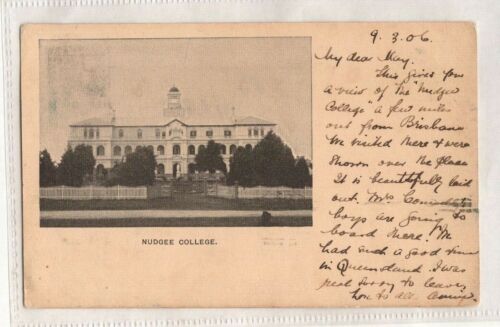 NUDGEE COLLEGE.
9.3.06.
My dear May,
This gives you
a view of the "Nudgee
College" a few miles
out from Brisbane
We visited there & were
shown over the place
It is beautifully laid
out. Mrs
boys are going to
board there. We
had such a good time
in Queensland. I was
real sorry to leave,
love to all.